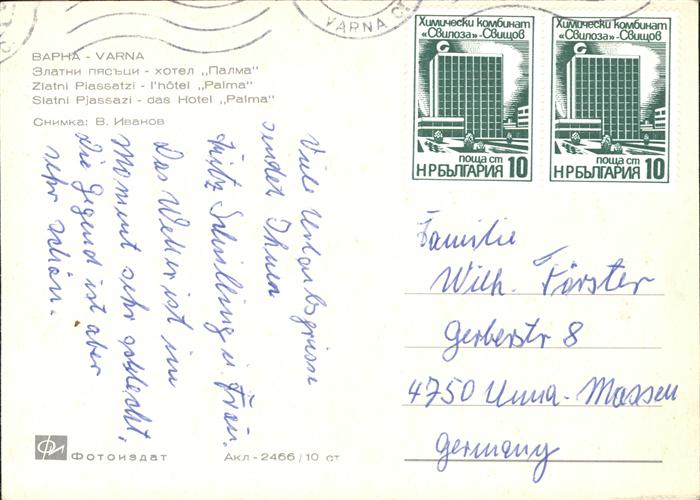 VARNA
ВАРНА - VARNA
Златни пясъци - хотел „Палма"
Zlatni Piassatzi - l'hôtel „Palma"
Slatni Pjassazi - das Hotel „Palma"
Снимка: В. Иванов
Химически комбинат
«Свилоза»-Свищов
поща ст
НРБЪЛГАРИЯ 10
Химически комбинат
«Свилоза»-Свищов
поща ст
НРБЪЛГАРИЯ 10
Viele Urlaubsgrüsse
sendet Ihnen
Fritz Schilling u. Frau.
Das Wetter ist im
Moment sehr schlecht,
die Gegend ist aber
sehr schön.
Familie
Wilh. Förster
Gerberstr 8
4750 Unna-Massen
Germany
Фотоиздат
Акл-2466/10 ст